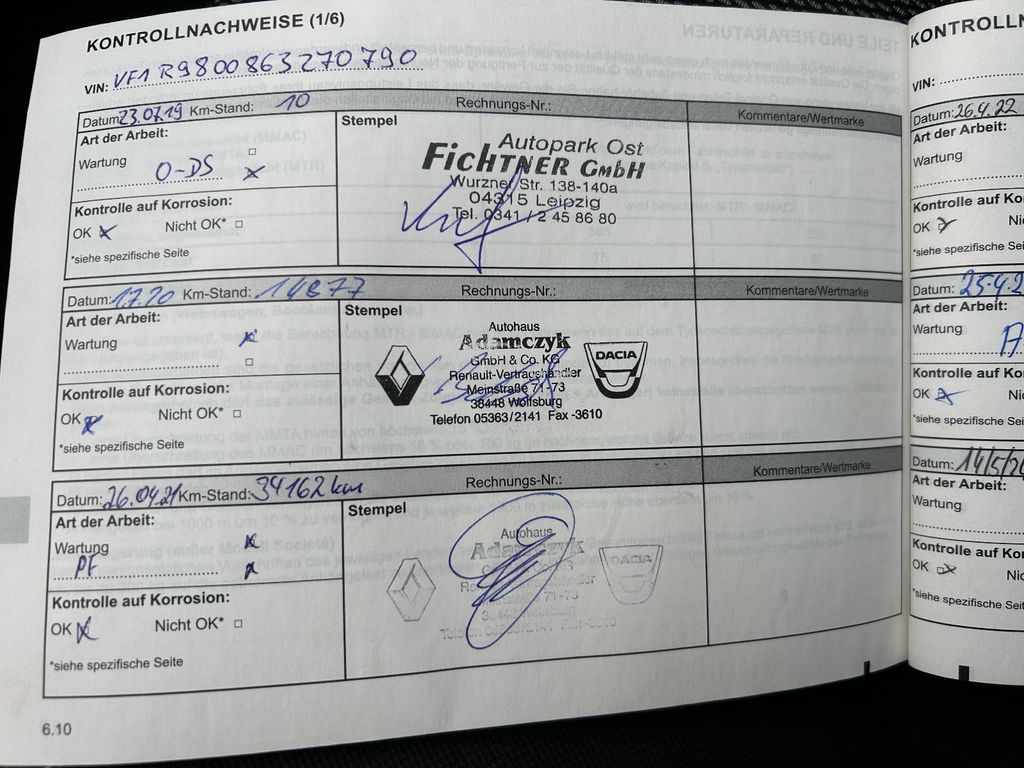 KONTROLLNACHWEISE (1/6)
VIN: VF1R9800863270790
Datum: 23.07.19 Km-Stand: 10 Rechnungs-Nr.: Kommentare/Wertmarke
Art der Arbeit:
Wartung
0-DS
Kontrolle auf Korrosion:
OK Nicht OK*
*siehe spezifische Seite
Stempel
Autopark Ost
FICHTNER GMBH
Wurzner Str. 138-140a
04315 Leipzig
Tel. 0341 / 2 45 86 80
Datum: Km-Stand: 14877 Rechnungs-Nr.: Kommentare/Wertmarke
Art der Arbeit:
Wartung
Kontrolle auf Korrosion:
OK Nicht OK*
*siehe spezifische Seite
Stempel
Autohaus
Adamczyk
GmbH & Co. KG
Renault-Vertragshändler
Meinstraße 71-73
38448 Wolfsburg
Telefon 05363/2141 Fax -3610
DACIA
Datum: 26.04.21 Km-Stand: 34162 km Rechnungs-Nr.: Kommentare/Wertmarke
Art der Arbeit:
Wartung
PF
Kontrolle auf Korrosion:
OK Nicht OK*
*siehe spezifische Seite
Stempel
Autohaus
Adamczyk
DACIA
6.10
KONTROLLN
VIN:
Datum: 26.4.22
Art der Arbeit:
Wartung
Kontrolle auf Kor
OK Nic
*siehe spezifische
Datum: 25.4.2
Art der Arbeit:
Wartung
Kontrolle auf Ko
OK Ni
*siehe spezifische
Datum: 14/5/24
Art der Arbeit:
Wartung
Kontrolle auf Ko
OK Nic
*siehe spezifische